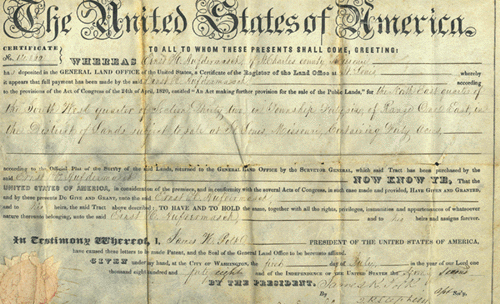 The United States of America.
CERTIFICATE
No.
TO ALL TO WHOM THESE PRESENTS SHALL COME, GREETING:
WHEREAS Ernst H. of St Charles county Missouri
ha deposited in the GENERAL LAND OFFICE of the United States, a Certificate of the Register of the Land Office at St Louis whereby
it appears that full payment has been made by the said Ernst H. according
to the provisions of the Act of Congress of the 24th of April, 1820, entitled "An Act making further provision for the sale of the Public Lands," for the North East quarter of
the South West quarter of Section Thirty two in Township of Range One East, in
the District of Lands subject to sale at St Louis Missouri, Containing Forty Acres
according to the Official Plat of the Survey of the said Lands, returned to the General Land Office by the SURVEYOR GENERAL, which said Tract has been purchased by the
said Ernst H. NOW KNOW YE, That the
UNITED STATES OF AMERICA, in consideration of the premises, and in conformity with the several Acts of Congress, in such case made and provided, HAVE GIVEN AND GRANTED,
and by these presents DO GIVE AND GRANT, unto the said Ernst H.
and to his heirs, the said Tract above described; TO HAVE AND TO HOLD the same, together with all the rights, privileges, immunities and appurtenances of whatsoever
nature thereunto belonging, unto the said Ernst H. and to his heirs and assigns forever.
In Testimony Whereof, I, James K. Polk PRESIDENT OF THE UNITED STATES OF AMERICA,
have caused these letters to be made Patent, and the Seal of the General Land Office to be hereunto affixed.
GIVEN under my hand, at the CITY OF WASHINGTON, the first day of in the year of our Lord one
thousand eight hundred and forty eight and of the INDEPENDENCE OF THE UNITED STATES the Seventy Second
BY THE PRESIDENT. James K. Polk
By